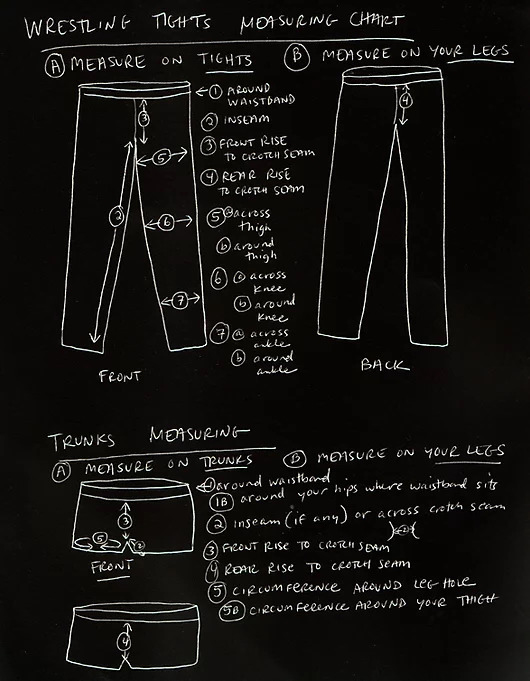 WRESTLING TIGHTS MEASURING CHART
Ⓐ MEASURE ON TIGHTS
Ⓑ MEASURE ON YOUR LEGS
① AROUND
WAISTBAND
② INSEAM
③ FRONT RISE
TO CROTCH SEAM
④ REAR RISE
TO CROTCH SEAM
⑤ ⓐ across
thigh
ⓑ around
thigh
⑥ ⓐ across
knee
ⓑ around
knee
⑦ ⓐ across
ankle
ⓑ around
ankle
③
⑤
②
⑥
⑦
FRONT
④
BACK
TRUNKS MEASURING
Ⓐ MEASURE ON TRUNKS
Ⓑ MEASURE ON YOUR LEGS
① around waistband
1B around your hips where waistband sits
② inseam (if any) or across crotch seam
②
③ FRONT RISE TO CROTCH SEAM
4 REAR RISE TO CROTCH SEAM
⑤ CIRCUMFERENCE AROUND LEG HOLE
5B CIRCUMFERENCE AROUND YOUR THIGH
③
⑤
②
FRONT
④